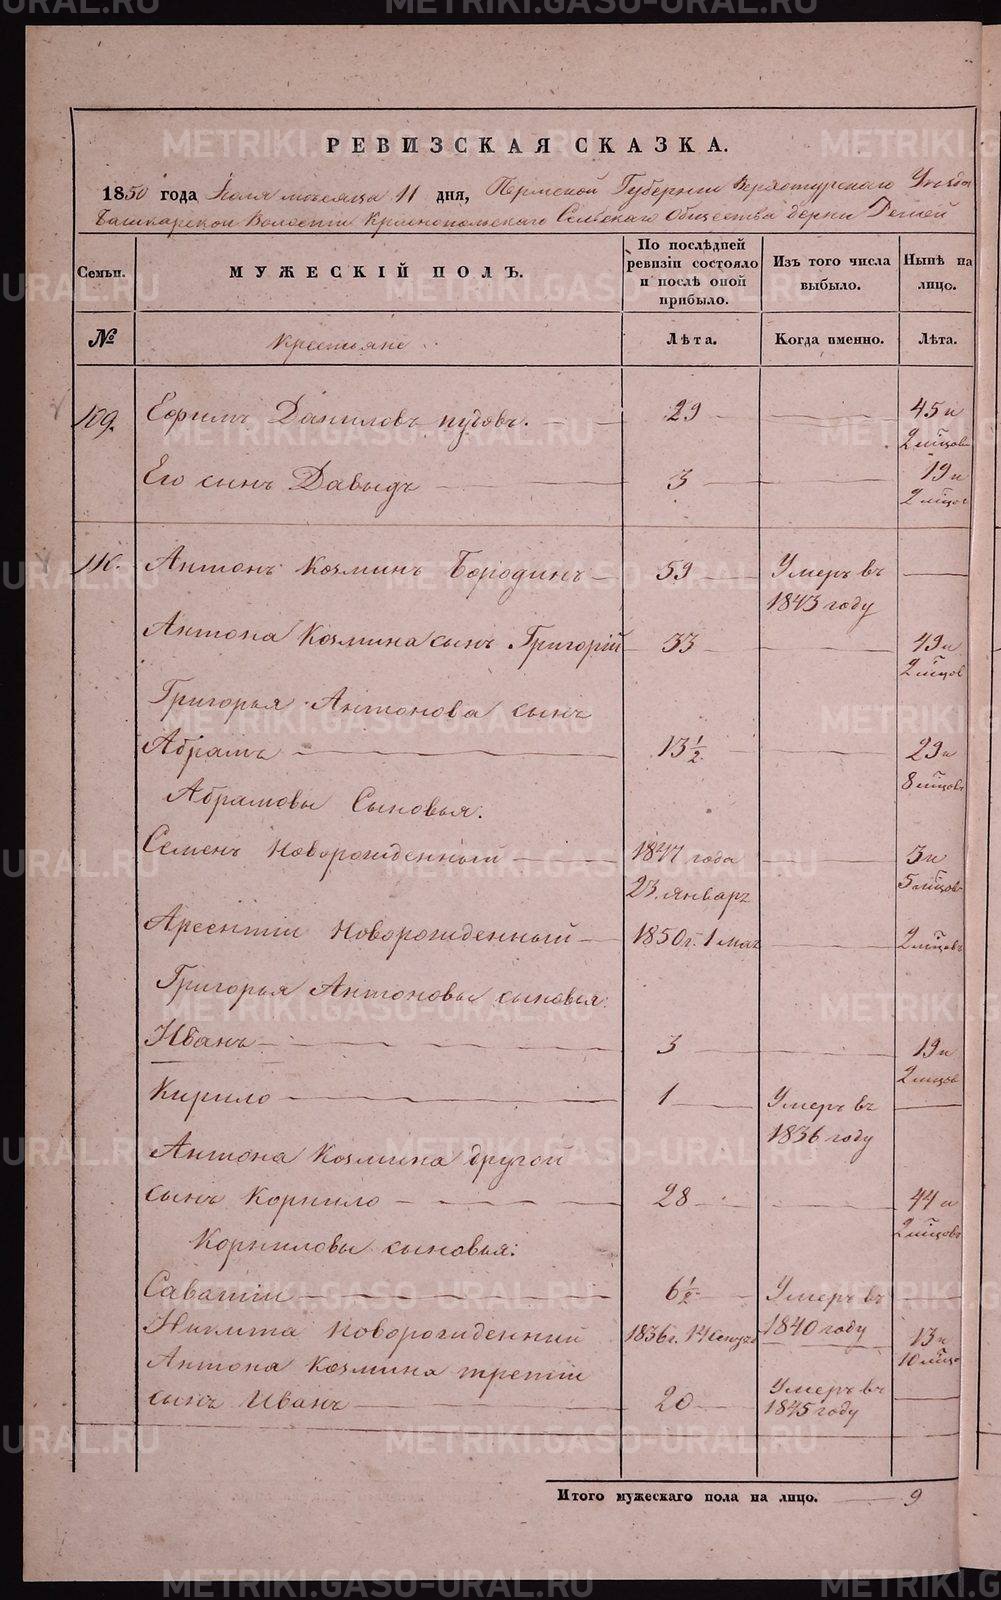 РЕВИЗСКАЯ СКАЗКА.
1850 года Июля месяца 11 дня, Пермской Губернии Верхотурского Уезда
Башкарской Волости Краснопольского Сельского Общества дерни
Семьи. МУЖЕСКІЙ ПОЛЪ. По послѣдней ревизіи состояло и послѣ оной прибыло. Изъ того числа выбыло. Нынѣ на лицо.
№ Крестьяне Лѣта. Когда именно. Лѣта.
109. Ефимъ Даниловъ пудовъ. 29 45 и
2 мцовъ
Его сынъ Давыдъ 3 19 и
2 мцов
110. Антонъ Козминъ Бородинъ 59 Умеръ въ
1843 году
Антона Козмина сынъ Григорій 33 49 и
2 мцов
Григорья Антонова сынъ
Абрамъ 13½ 29 и
8 мцовъ
Абрамовы Сыновья:
Семенъ Новорожденный 1847 года 3 и
23 январъ 5 мцовъ
Арсентiи Новорожденный 1850 г. 1 мая 2 мцовъ
Григорья Антоновы сыновья:
Иванъ 3 19 и
2 мцов
Кирило 1 Умеръ въ
1836 году
Антона Козмина другой
сынъ Корнило 28 44 и
2 мцовъ
Корниловы сыновья:
Саватiи 6½ Умеръ въ
1840 году
Никита Новорожденный 1836 г. 14 13 и
10 мцо
Антона Козмина третiи
сынъ Иванъ 20 Умеръ въ
1845 году
Итого мужескаго пола на лицо. 9
METRIKI.GASO-URAL.RU